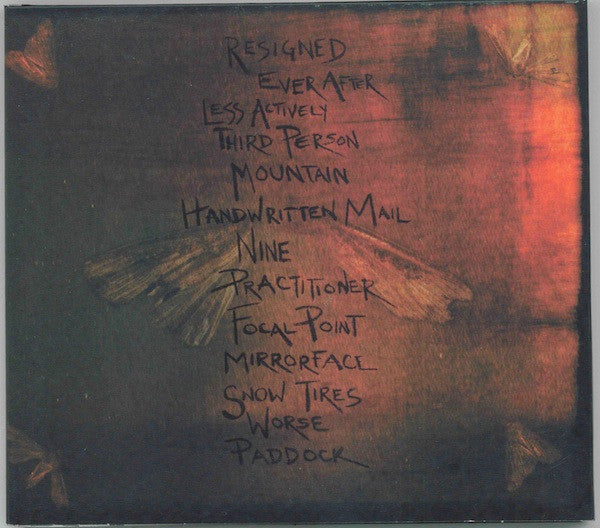 RESIGNED
EVER AFTER
LESS ACTIVELY
THIRD PERSON
MOUNTAIN
HANDWRITTEN MAIL
NINE
PRACTITIONER
FOCAL-POINT
MIRRORFACE
SNOW TIRES
WORSE
PADDOCK